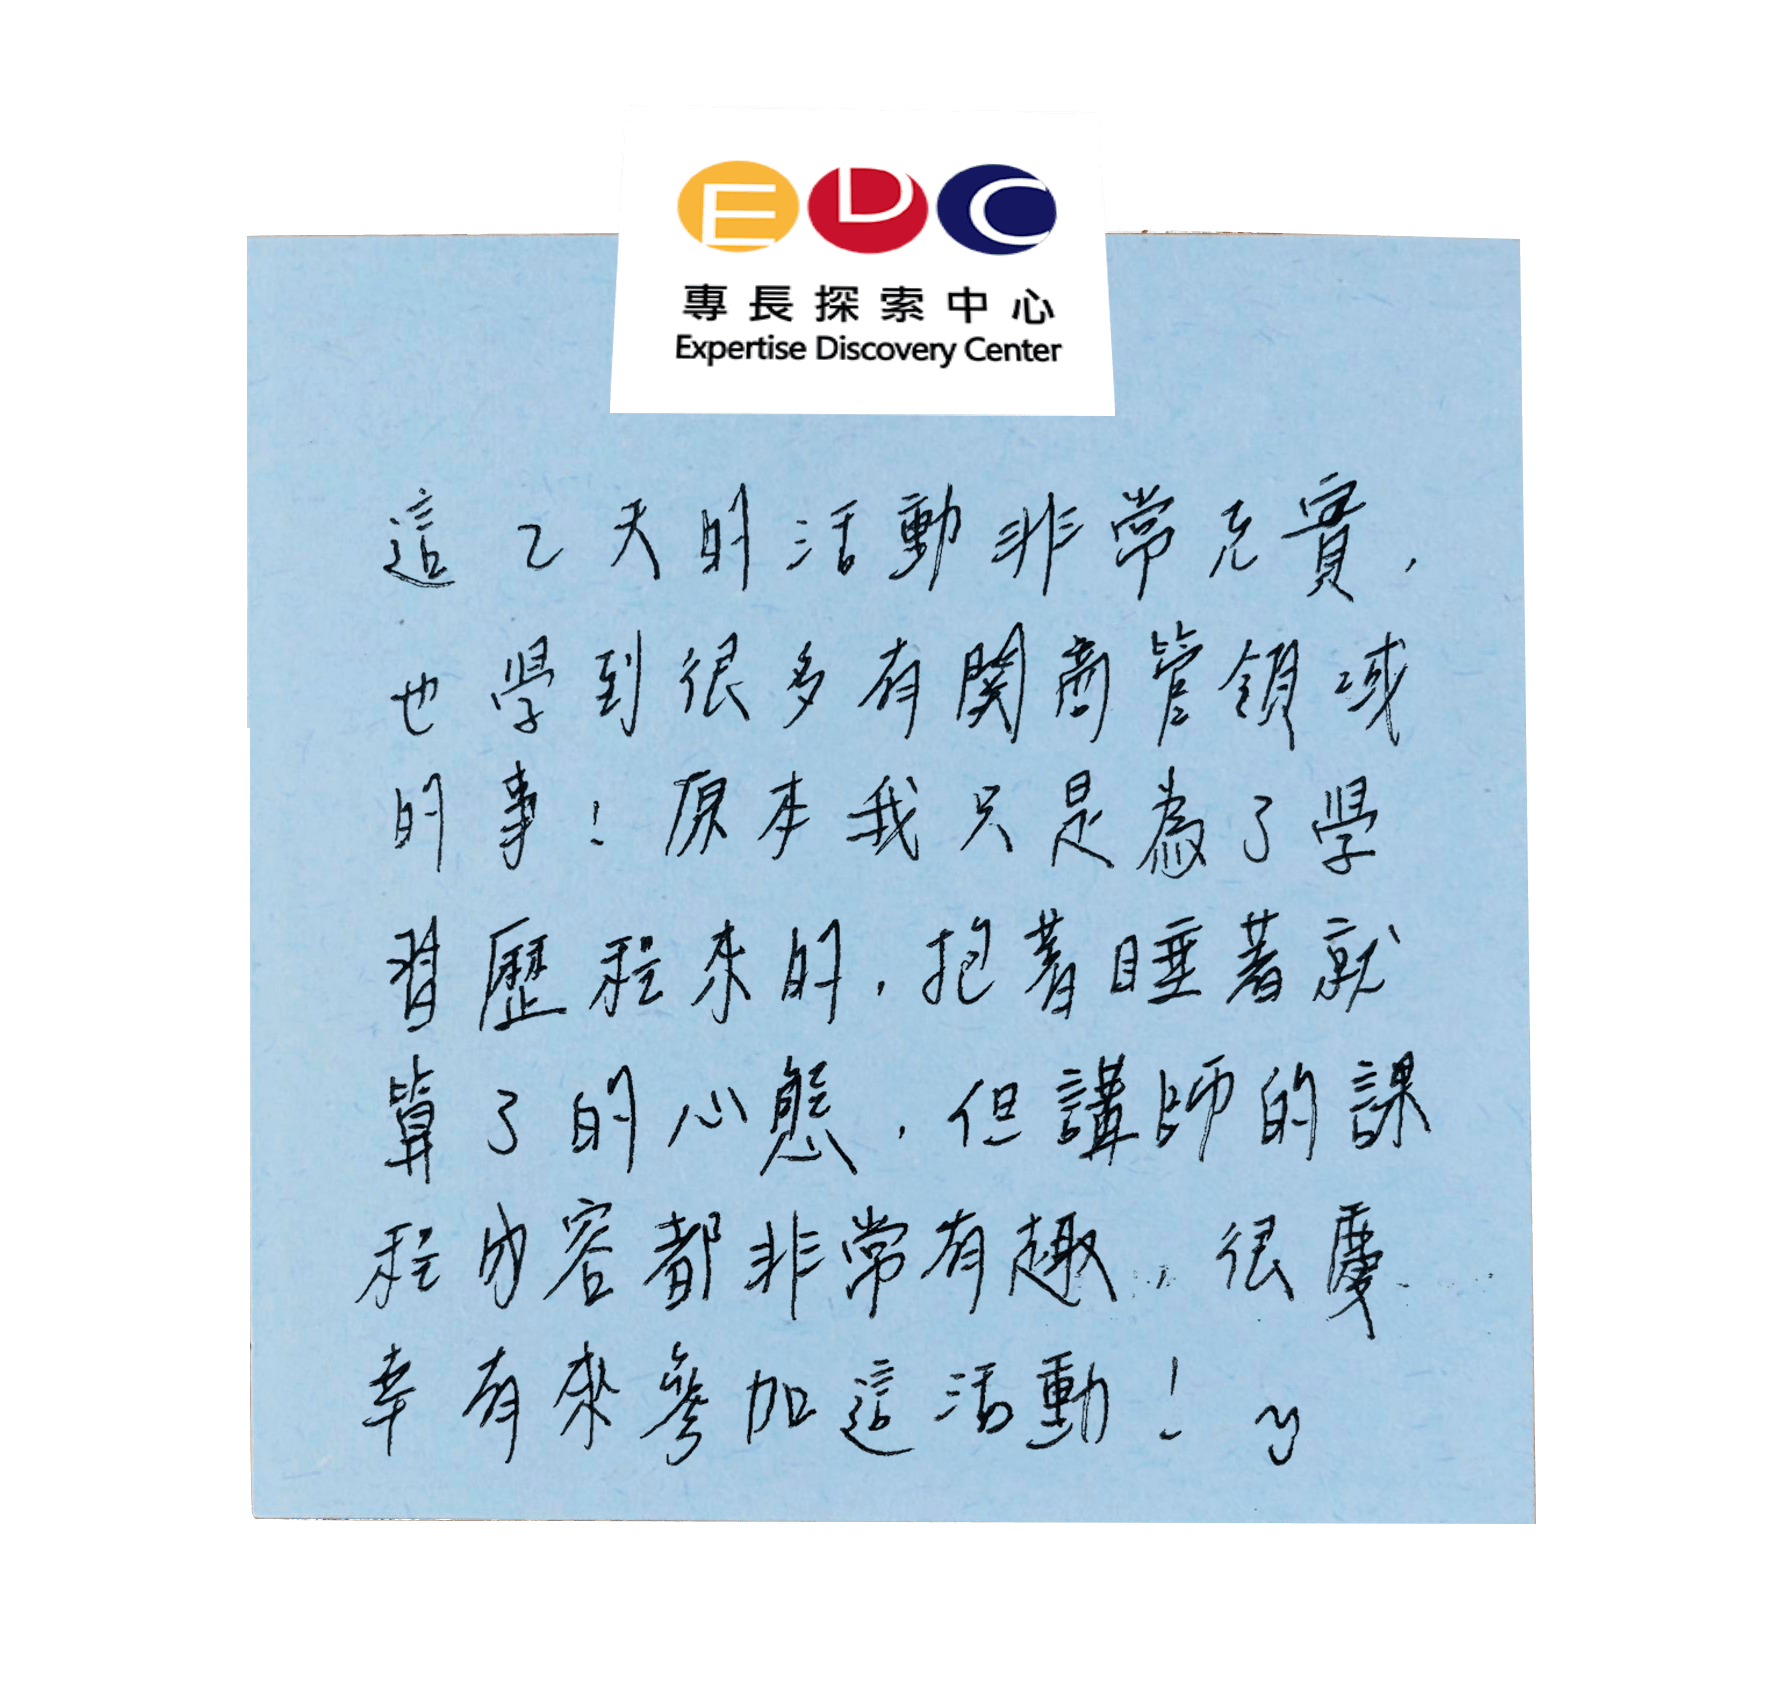 EDC
專長探索中心
Expertise Discovery Center
這2天的活動非常充實，
也學到很多有関商管領域
的事！原本我只是為了學
習歷程來的，抱著睡著就
算了的心態，但講師的課
程內容都非常有趣，很慶
幸有來參加這活動！